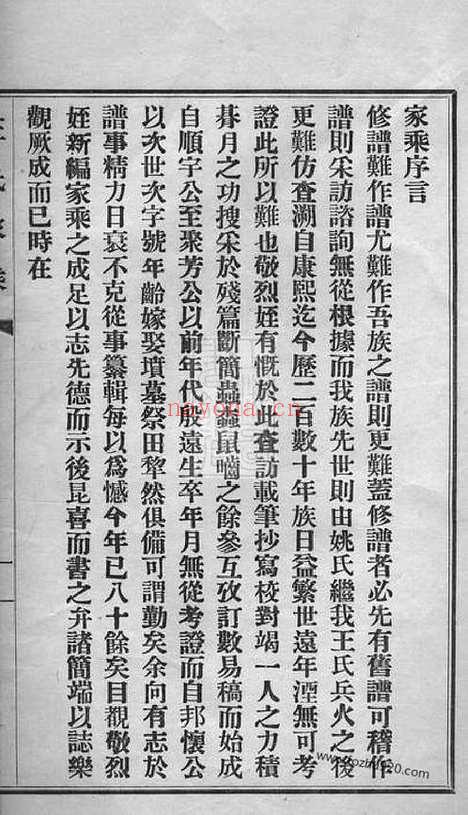 家乘序言
修譜難作譜尤難作吾族之譜則更難蓋修譜者必先有舊譜可稽作
譜則采訪諮詢無從根據而我族先世則由姚氏繼我王氏兵火之後
更難仿查溯自康熙迄今歷二百數十年族日益繁世遠年湮無可考
證此所以難也敬烈姪有慨於此查訪載筆抄寫校對竭一人之力積
朞月之功搜采於殘篇斷簡蟲蝕鼠嚙之餘參互攷訂數易稿而始成
自順宇公至聚芳公以前年代旣遠生卒年月無從考證而自邦懷公
以次世次字號年齡嫁娶墳墓祭田犂然俱備可謂勤矣余向有志於
譜事精力日衰不克從事纂輯每以爲憾今年已八十餘矣目觀敬烈
姪新編家乘之成足以志先德而示後昆喜而書之弁諸簡端以誌樂
觀厥成而已時在
nayona.cn